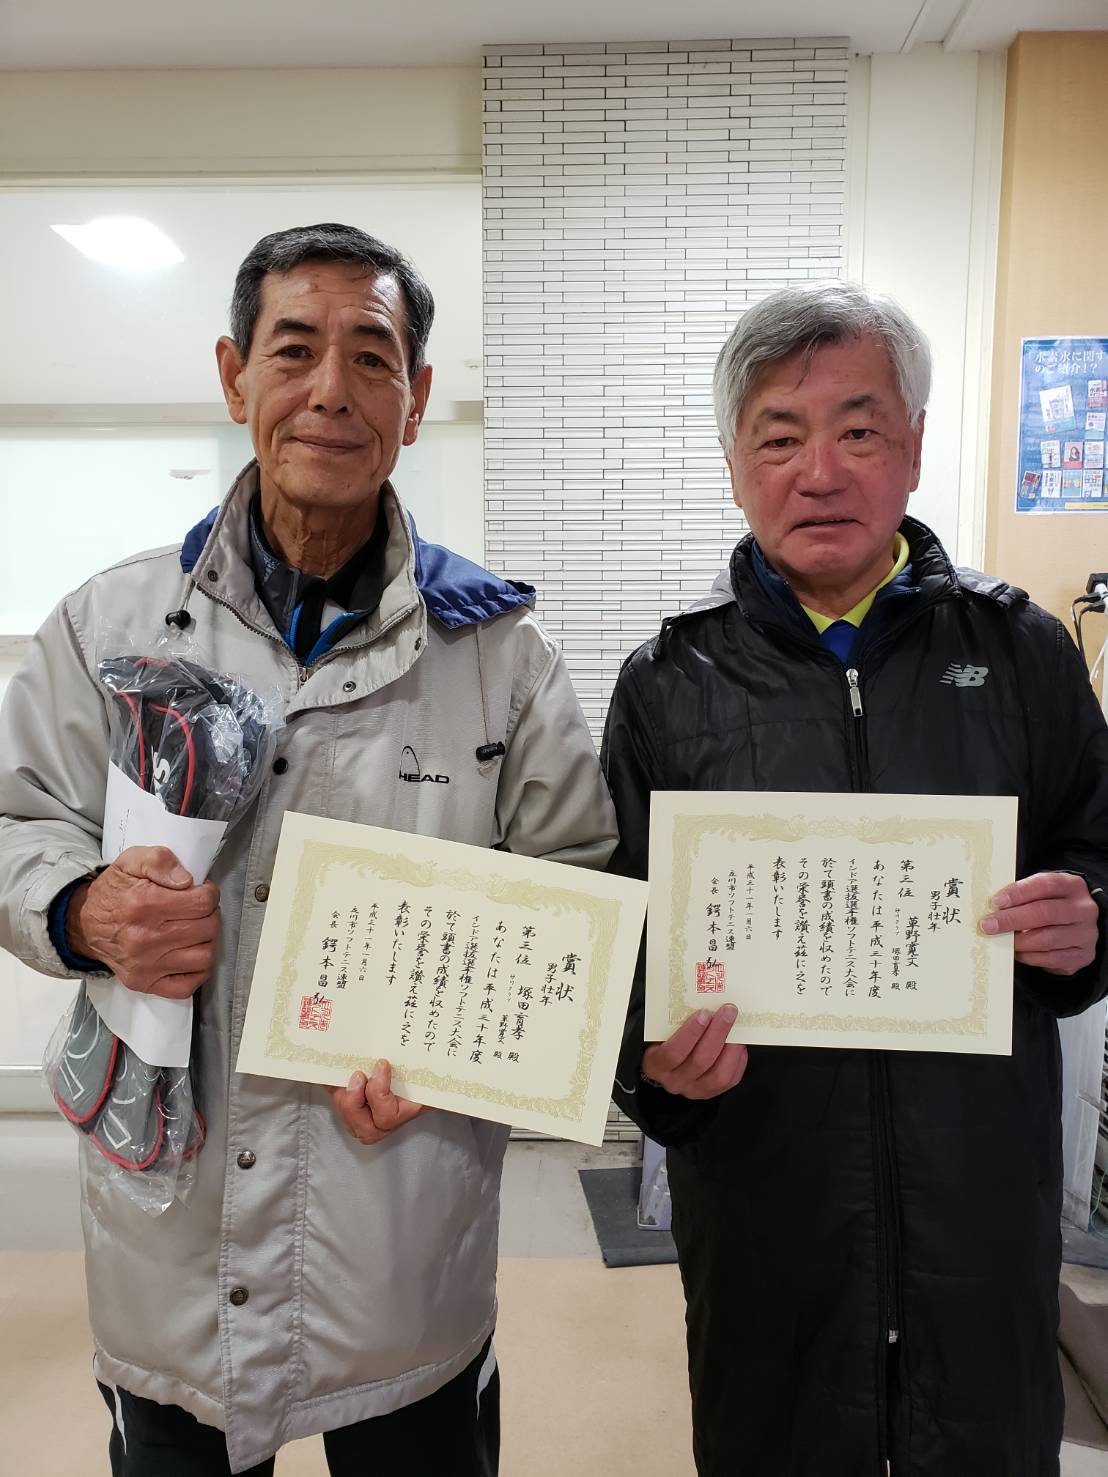 HEAD
NB
水素水に関す
のご紹介!?
賞状
男子壮年
第三位 塚田育孝 殿
草野寛文 殿
あなたは平成三十年度
インドア選抜選手権ソフトテニス大会に
於て頭書の成績を収めたので
その栄誉を讃え茲に之を
表彰いたします
平成三十一年一月六日
立川市ソフトテニス連盟
会長 鍔本昌弘
賞状
男子壮年
第三位 草野寛文 殿
塚田育孝 殿
あなたは平成三十年度
インドア選抜選手権ソフトテニス大会に
於て頭書の成績を収めたので
その栄誉を讃え茲に之を
表彰いたします
平成三十一年一月六日
立川市ソフトテニス連盟
会長 鍔本昌弘